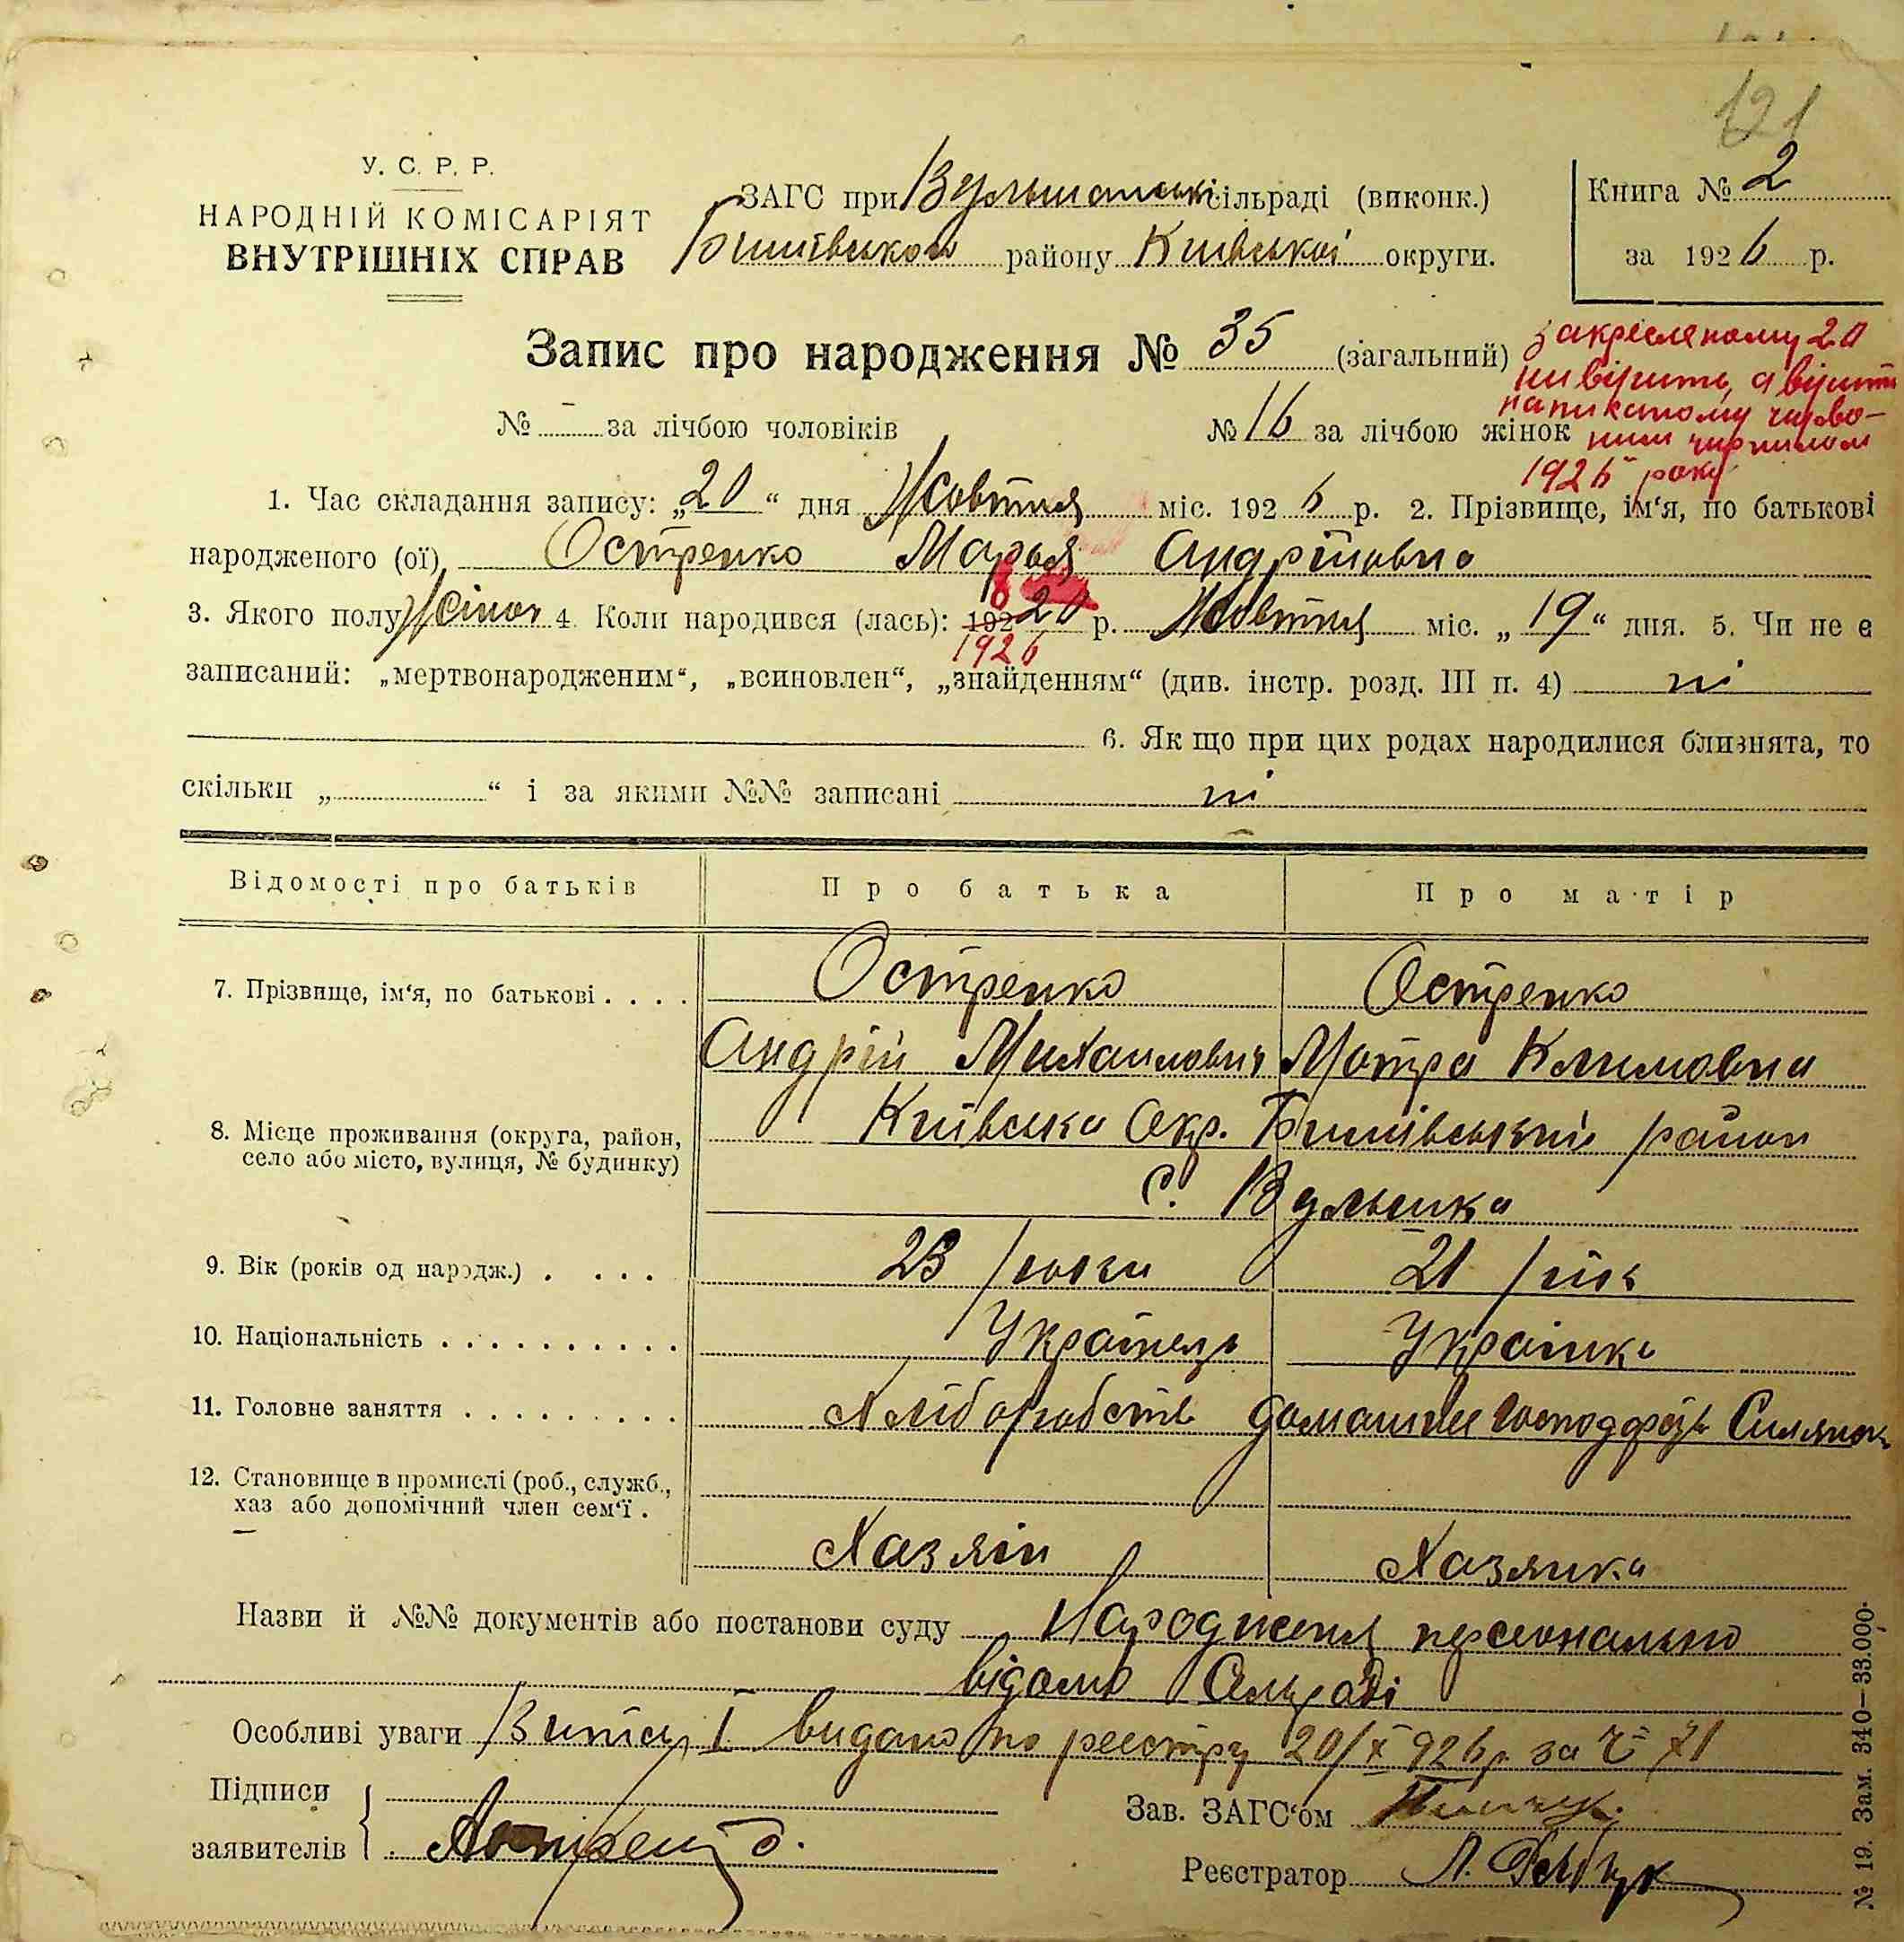 121
У. С. Р. Р.
НАРОДНІЙ КОМІСАРІЯТ
ВНУТРІШНІХ СПРАВ
ЗАГС при Вульшанській сільраді (виконк.)
Бишівського району Київської округи.
Книга № 2
за 1926 р.
Запис про народження № 35 (загальний)
закресленому 20
не вірить, а вірить
написаному черво-
ним чернилом
1926 року
№ - за лічбою чоловіків № 16 за лічбою жінок
1. Час складання запису: „20“ дня Жовтня міс. 1926 р. 2. Прізвище, ім'я, по батькові
народженого (ої) Остренко Марья Андріівна
3. Якого полу Жіноч 4. Коли народився (лась): 192 20 р. Жовтня міс. „19“ дня. 5. Чи не є
1926
записаний: „мертвонародженим“, „всиновлен“, „знайденням“ (див. інстр. розд. III п. 4) ні
6. Як що при цих родах народилися близнята, то
скільки „ “ і за якими №№ записані ні
Відомості про батьків Про батька Про матір
7. Прізвище, ім'я, по батькові . . . . Остренко Остренко
Андрій Михаилович Мотра Климовна
8. Місце проживання (округа, район, Київська Окр. Бишівський район
село або місто, вулиця, № будинку)
с. Вульшка
9. Вік (років од народж.) . . . . 23 роки 21 рік
10. Національність . . . . . . . . . . Українець Українка
11. Головне заняття . . . . . . . . . Хліборобств домашнє господар
12. Становище в промислі (роб., служб.,
хаз або допомічний член сем'ї .
Хазяін Хазяйка
Назви й №№ документів або постанови суду Народження персонально
відомо Сельраді
Особливі уваги Витяг I видано по реєстру 20/X 926 р. за № 71
Підписи
заявителів
Зав. ЗАГС'ом
Реєстратор Л.
№ 19. Зам. 340—33.000.